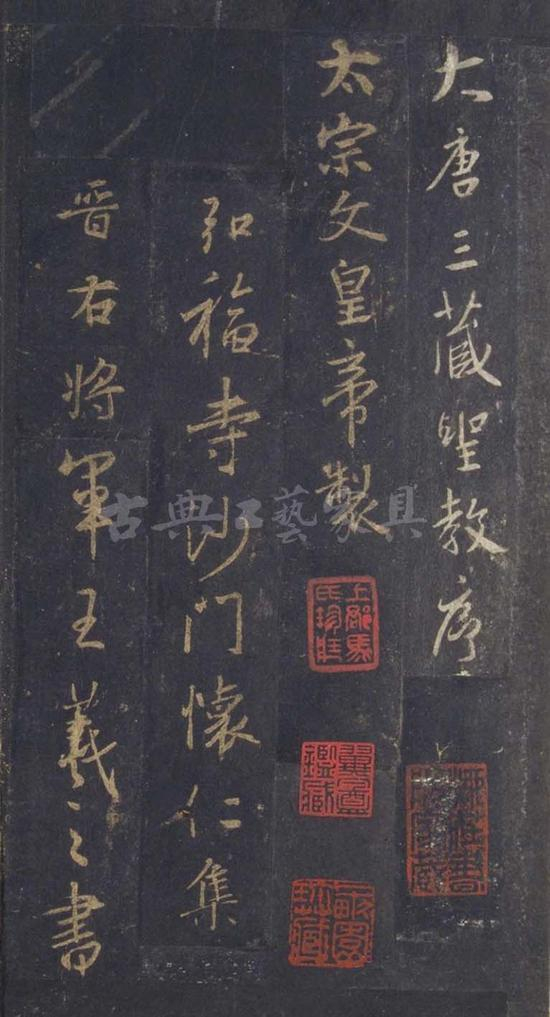 大唐三藏聖教序
太宗文皇帝製
弘福寺沙門懷仁集
晉右將軍王羲之書
古典工藝家具